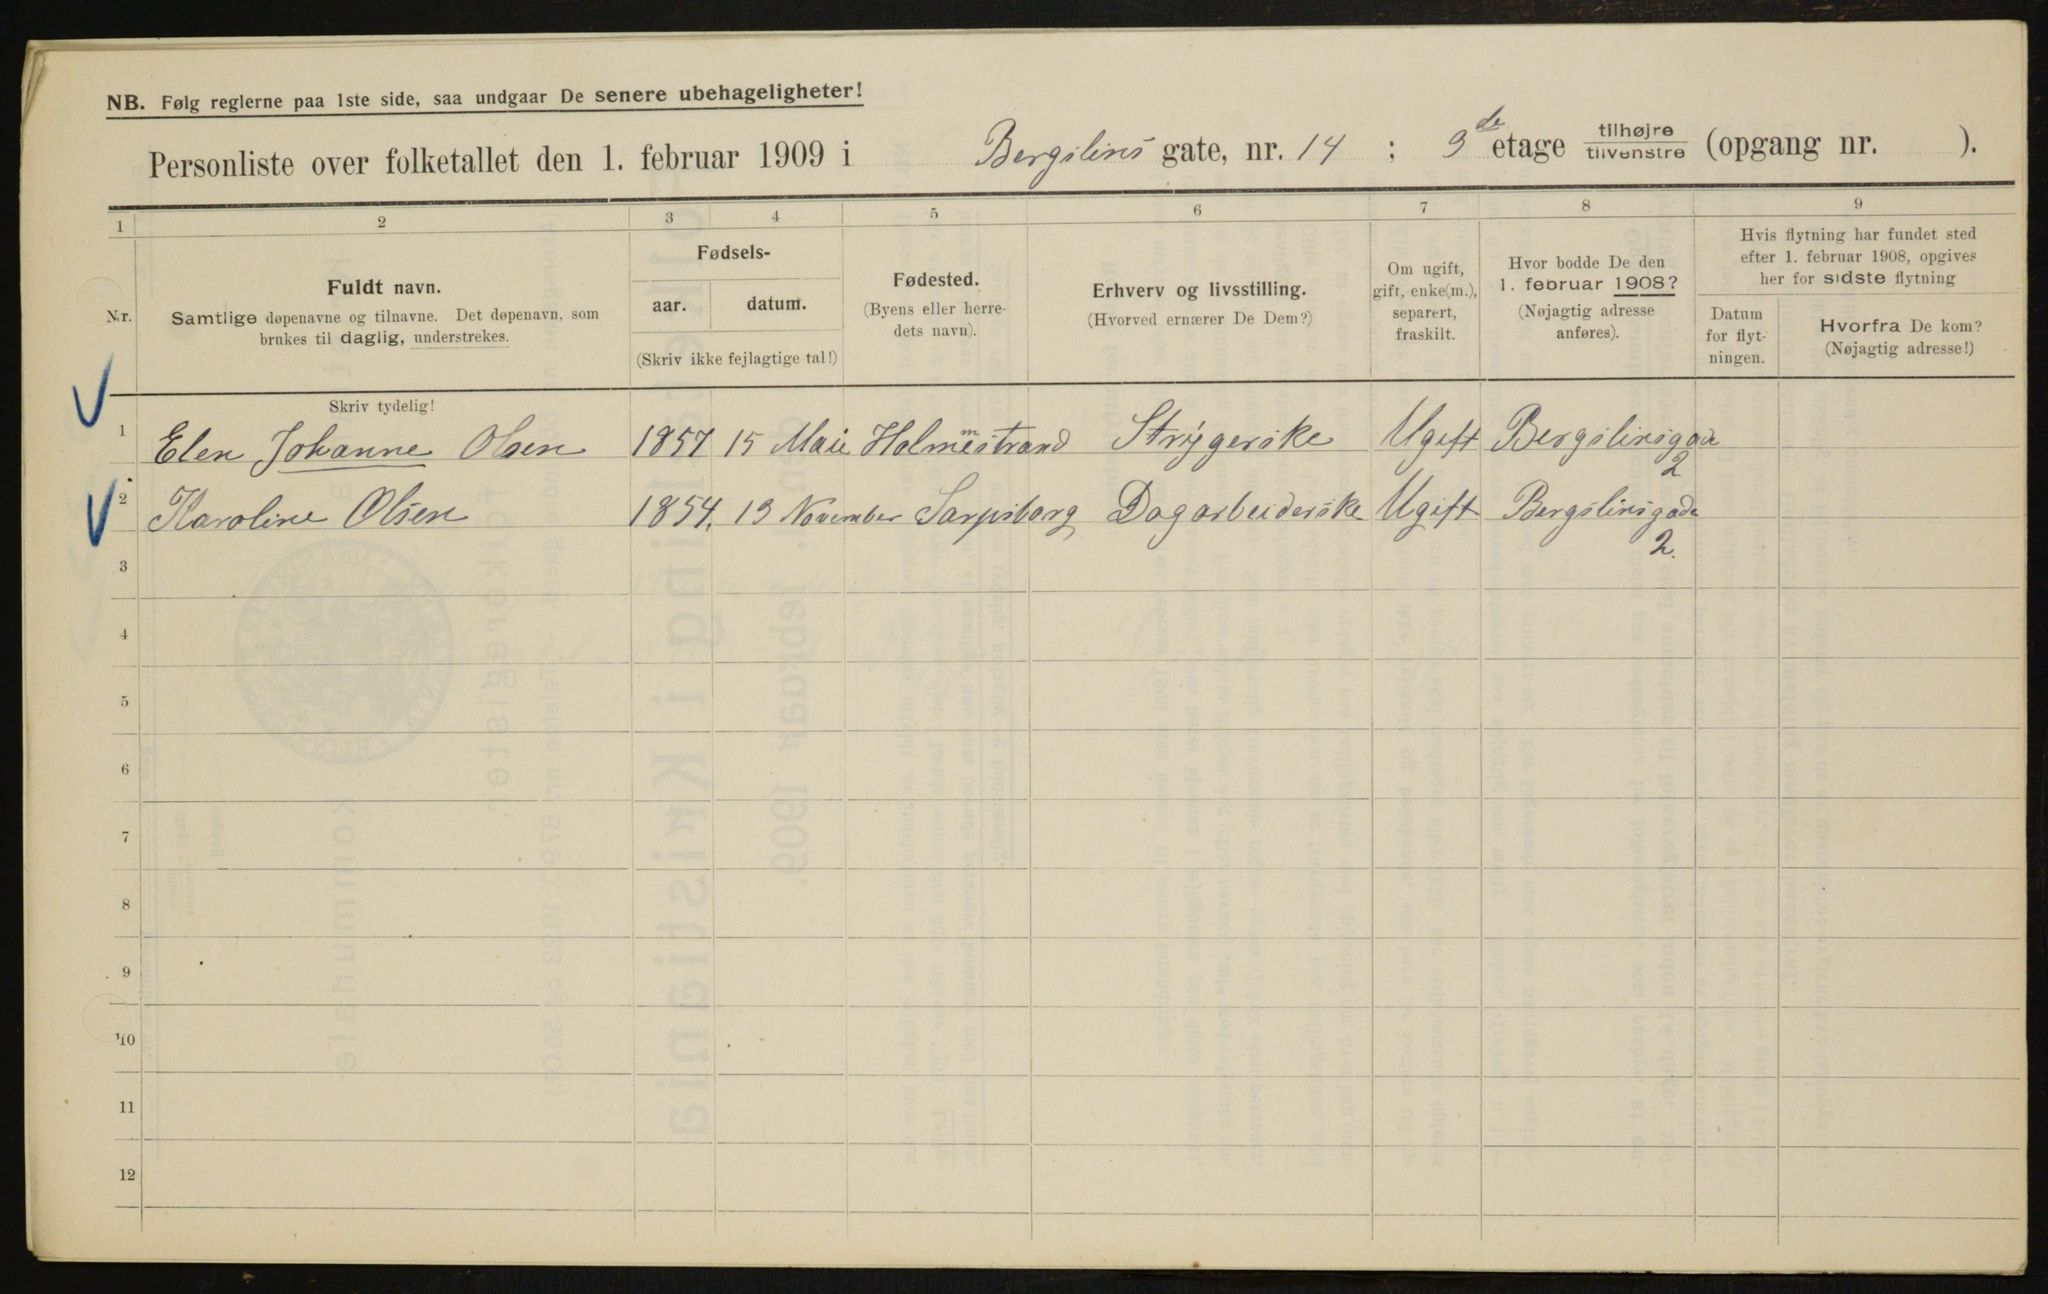 NB. Følg reglerne paa 1ste side, saa undgaar De senere ubehageligheter!
Personliste over folketallet den 1. februar 1909 i Bergsliens gate, nr. 14 ; 3de etage tilhøjre/tilvenstre (opgang nr. ).
1 2 3 4 5 6 7 8 9
Nr.
Fuldt navn.
Samtlige døpenavne og tilnavne. Det døpenavn, som
brukes til daglig, understrekes.
Fødsels-
aar. datum.
(Skriv ikke fejlagtige tal!)
Fødested.
(Byens eller herre-
dets navn).
Erhverv og livsstilling.
(Hvorved ernærer De Dem?)
Om ugift,
gift, enke(m.),
separert,
fraskilt.
Hvor bodde De den
1. februar 1908?
(Nøjagtig adresse
anføres).
Hvis flytning har fundet sted
efter 1. februar 1908, opgives
her for sidste flytning
Datum
for flyt-
ningen.
Hvorfra De kom?
(Nøjagtig adresse!)
Skriv tydelig!
1 Elen Johanne Olsen 1857 15 Maie Holmestrand Strygerske Ugift Bergslinsgade
2
2 Karoline Olsen 1854. 13 November Sarpsborg Dagarbeiderske Ugift Bergslinsgade
2.
3
4
5
6
7
8
9
10
11
12